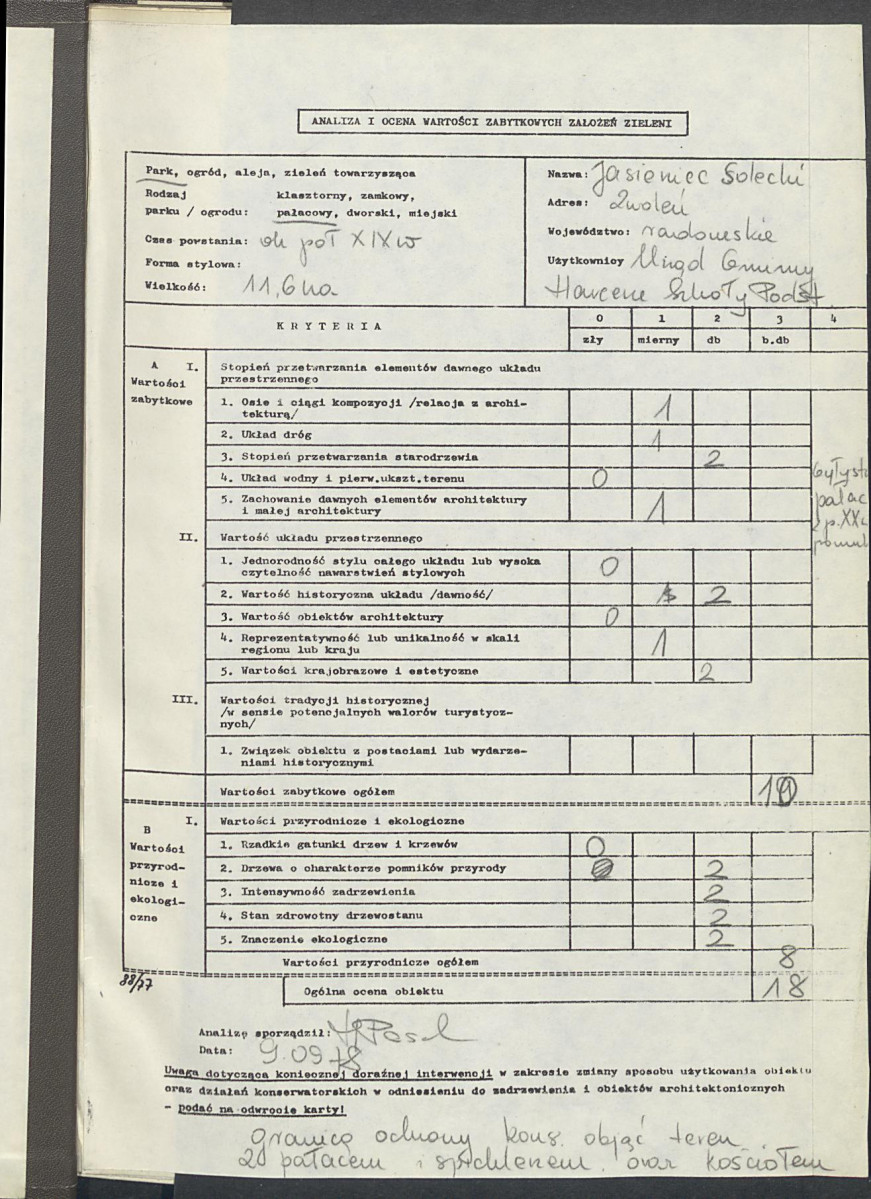 ANALIZA I OCENA WARTOŚCI ZABYTKOWYCH ZAŁOŻEŃ ZIELENI
Park, ogród, aleja, zieleń towarzysząca
Rodzaj klasztorny, zamkowy,
parku / ogrodu: pałacowy, dworski, miejski
Czas powstania: ok poł XIX w
Forma stylowa:
Wielkość: 11,6 ha
Nazwa: Jasieniec Solecki
Adres: Zwoleń
Województwo: radomskie
Użytkownicy Urząd Gminy
Harcerze Szkoły Podst.
KRYTERIA
0 1 2 3 4
zły mierny db b.db
A I. Stopień przetwarzania elementów dawnego układu
Wartości przestrzennego
zabytkowe
1. Osie i ciągi kompozycji /relacja z archi-
tekturą/ 1
2. Układ dróg 1
3. Stopień przetwarzania starodrzewia 2
4. Układ wodny i pierw.ukszt.terenu 0
5. Zachowanie dawnych elementów architektury
i małej architektury 1
pałac
p. XX
II. Wartość układu przestrzennego
1. Jednorodność stylu całego układu lub wysoka
czytelność nawarstwień stylowych 0
2. Wartość historyczna układu /dawność/ 2
3. Wartość obiektów architektury 0
4. Reprezentatywność lub unikalność w skali
regionu lub kraju 1
5. Wartości krajobrazowe i estetyczne 2
III. Wartości tradycji historycznej
/w sensie potencjalnych walorów turystycz-
nych/
1. Związek obiektu z postaciami lub wydarze-
niami historycznymi
Wartości zabytkowe ogółem 10
B I. Wartości przyrodnicze i ekologiczne
Wartości
przyrod-
nicze i
ekologi-
czne
1. Rzadkie gatunki drzew i krzewów 0
2. Drzewa o charakterze pomników przyrody 2
3. Intensywność zadrzewienia 2
4. Stan zdrowotny drzewostanu 2
5. Znaczenie ekologiczne 2
Wartości przyrodnicze ogółem 8
88/77
Ogólna ocena obiektu 18
Analizę sporządził:
Data: 9.09 78
Uwaga dotycząca koniecznej doraźnej interwencji w zakresie zmiany sposobu użytkowania obiektu
oraz działań konserwatorskich w odniesieniu do zadrzewienia i obiektów architektonicznych
- podać na odwrocie karty!
granicą ochrony kons. objąć teren
z pałacem i spichlerzem oraz kościołem